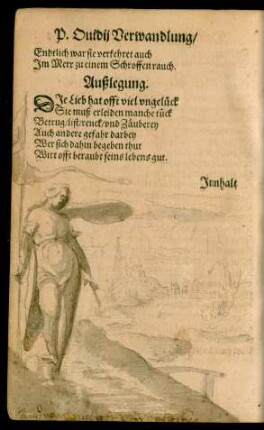 P. Ouidij Verwandlung/
Endtlich war sie verkehret auch
Im Meer zu einem Schroffen rauch.
Außlegung.
DIe Lieb hat offt viel vngelück
Sie muß erleiden manche tück
Betrug/list/renck/vnd Zäuberey
Auch andere gefahr darbey
Wer sich dahin begeben thut
Wirt offt beraubt seins lebens gut.
Innhalt